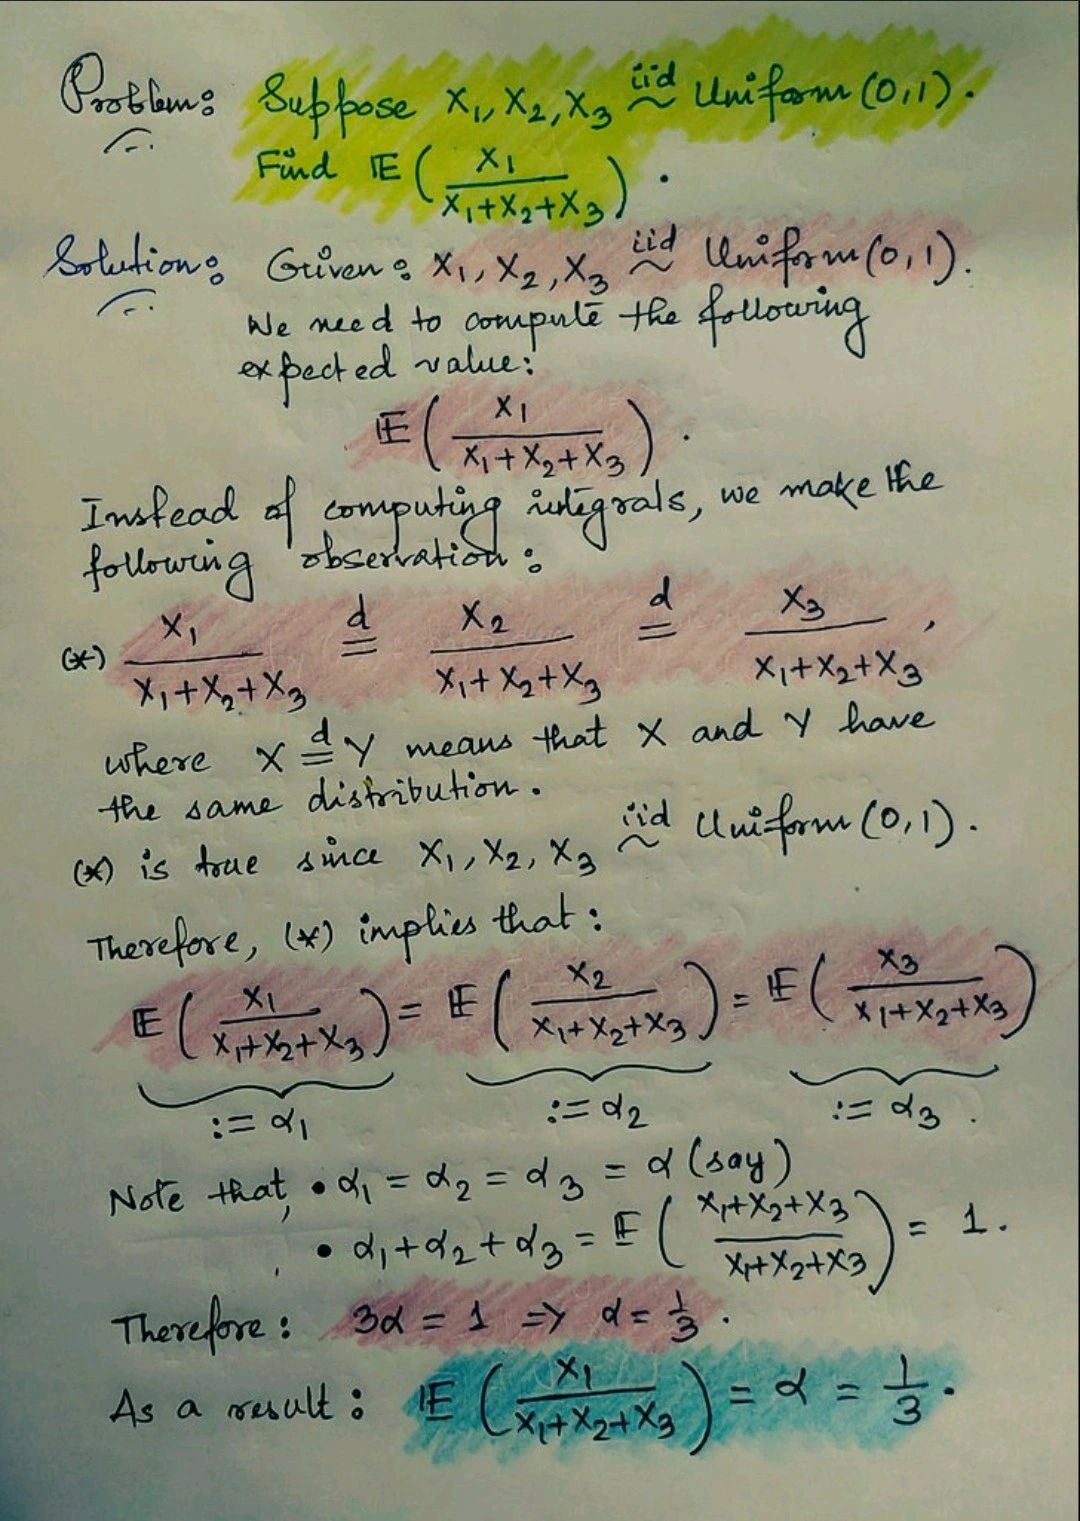 Problem: Suppose X₁, X₂, X₃ iid ~ Uniform (0,1).
Find 𝔼 ( X₁ / X₁+X₂+X₃ ).
Solution: Given: X₁, X₂, X₃ iid ~ Uniform (0,1).
We need to compute the following
expected value:
𝔼 ( X₁ / X₁+X₂+X₃ ).
Instead of computing integrals, we make the
following observation:
(*) X₁ / X₁+X₂+X₃ d= X₂ / X₁+X₂+X₃ d= X₃ / X₁+X₂+X₃ ,
where X d= Y means that X and Y have
the same distribution.
(*) is true since X₁, X₂, X₃ iid ~ Uniform (0,1).
Therefore, (*) implies that:
𝔼 ( X₁ / X₁+X₂+X₃ ) = 𝔼 ( X₂ / X₁+X₂+X₃ ) = 𝔼 ( X₃ / X₁+X₂+X₃ )
:= α₁ := α₂ := α₃ .
Note that, • α₁ = α₂ = α₃ = α (say)
• α₁+α₂+α₃ = 𝔼 ( X₁+X₂+X₃ / X₁+X₂+X₃ ) = 1.
Therefore: 3α = 1 => α = 1/3 .
As a result: 𝔼 ( X₁ / X₁+X₂+X₃ ) = α = 1/3 .